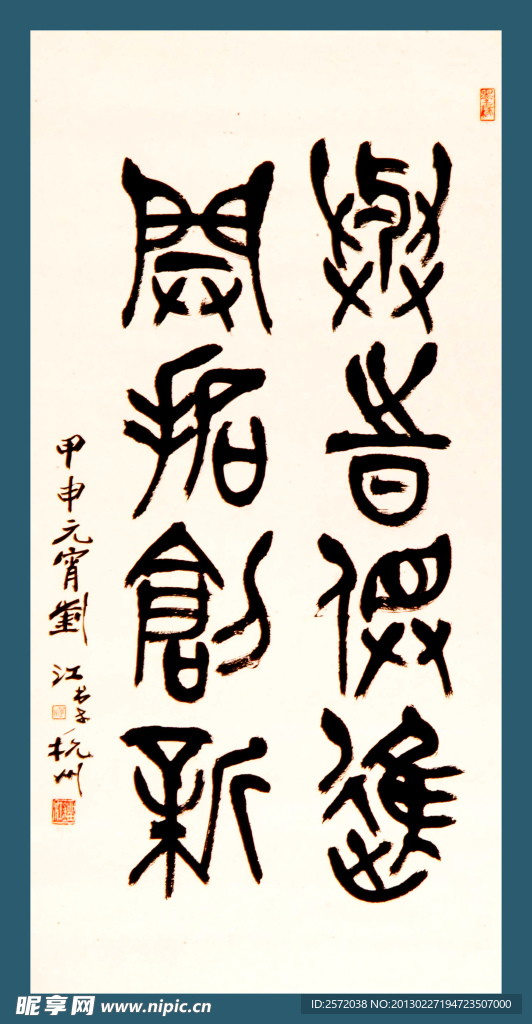 與時俱進
開拓創新
甲申元宵劉江書于杭州
昵享网 www.nipic.cn
ID:2572038 NO:20130227194723507000